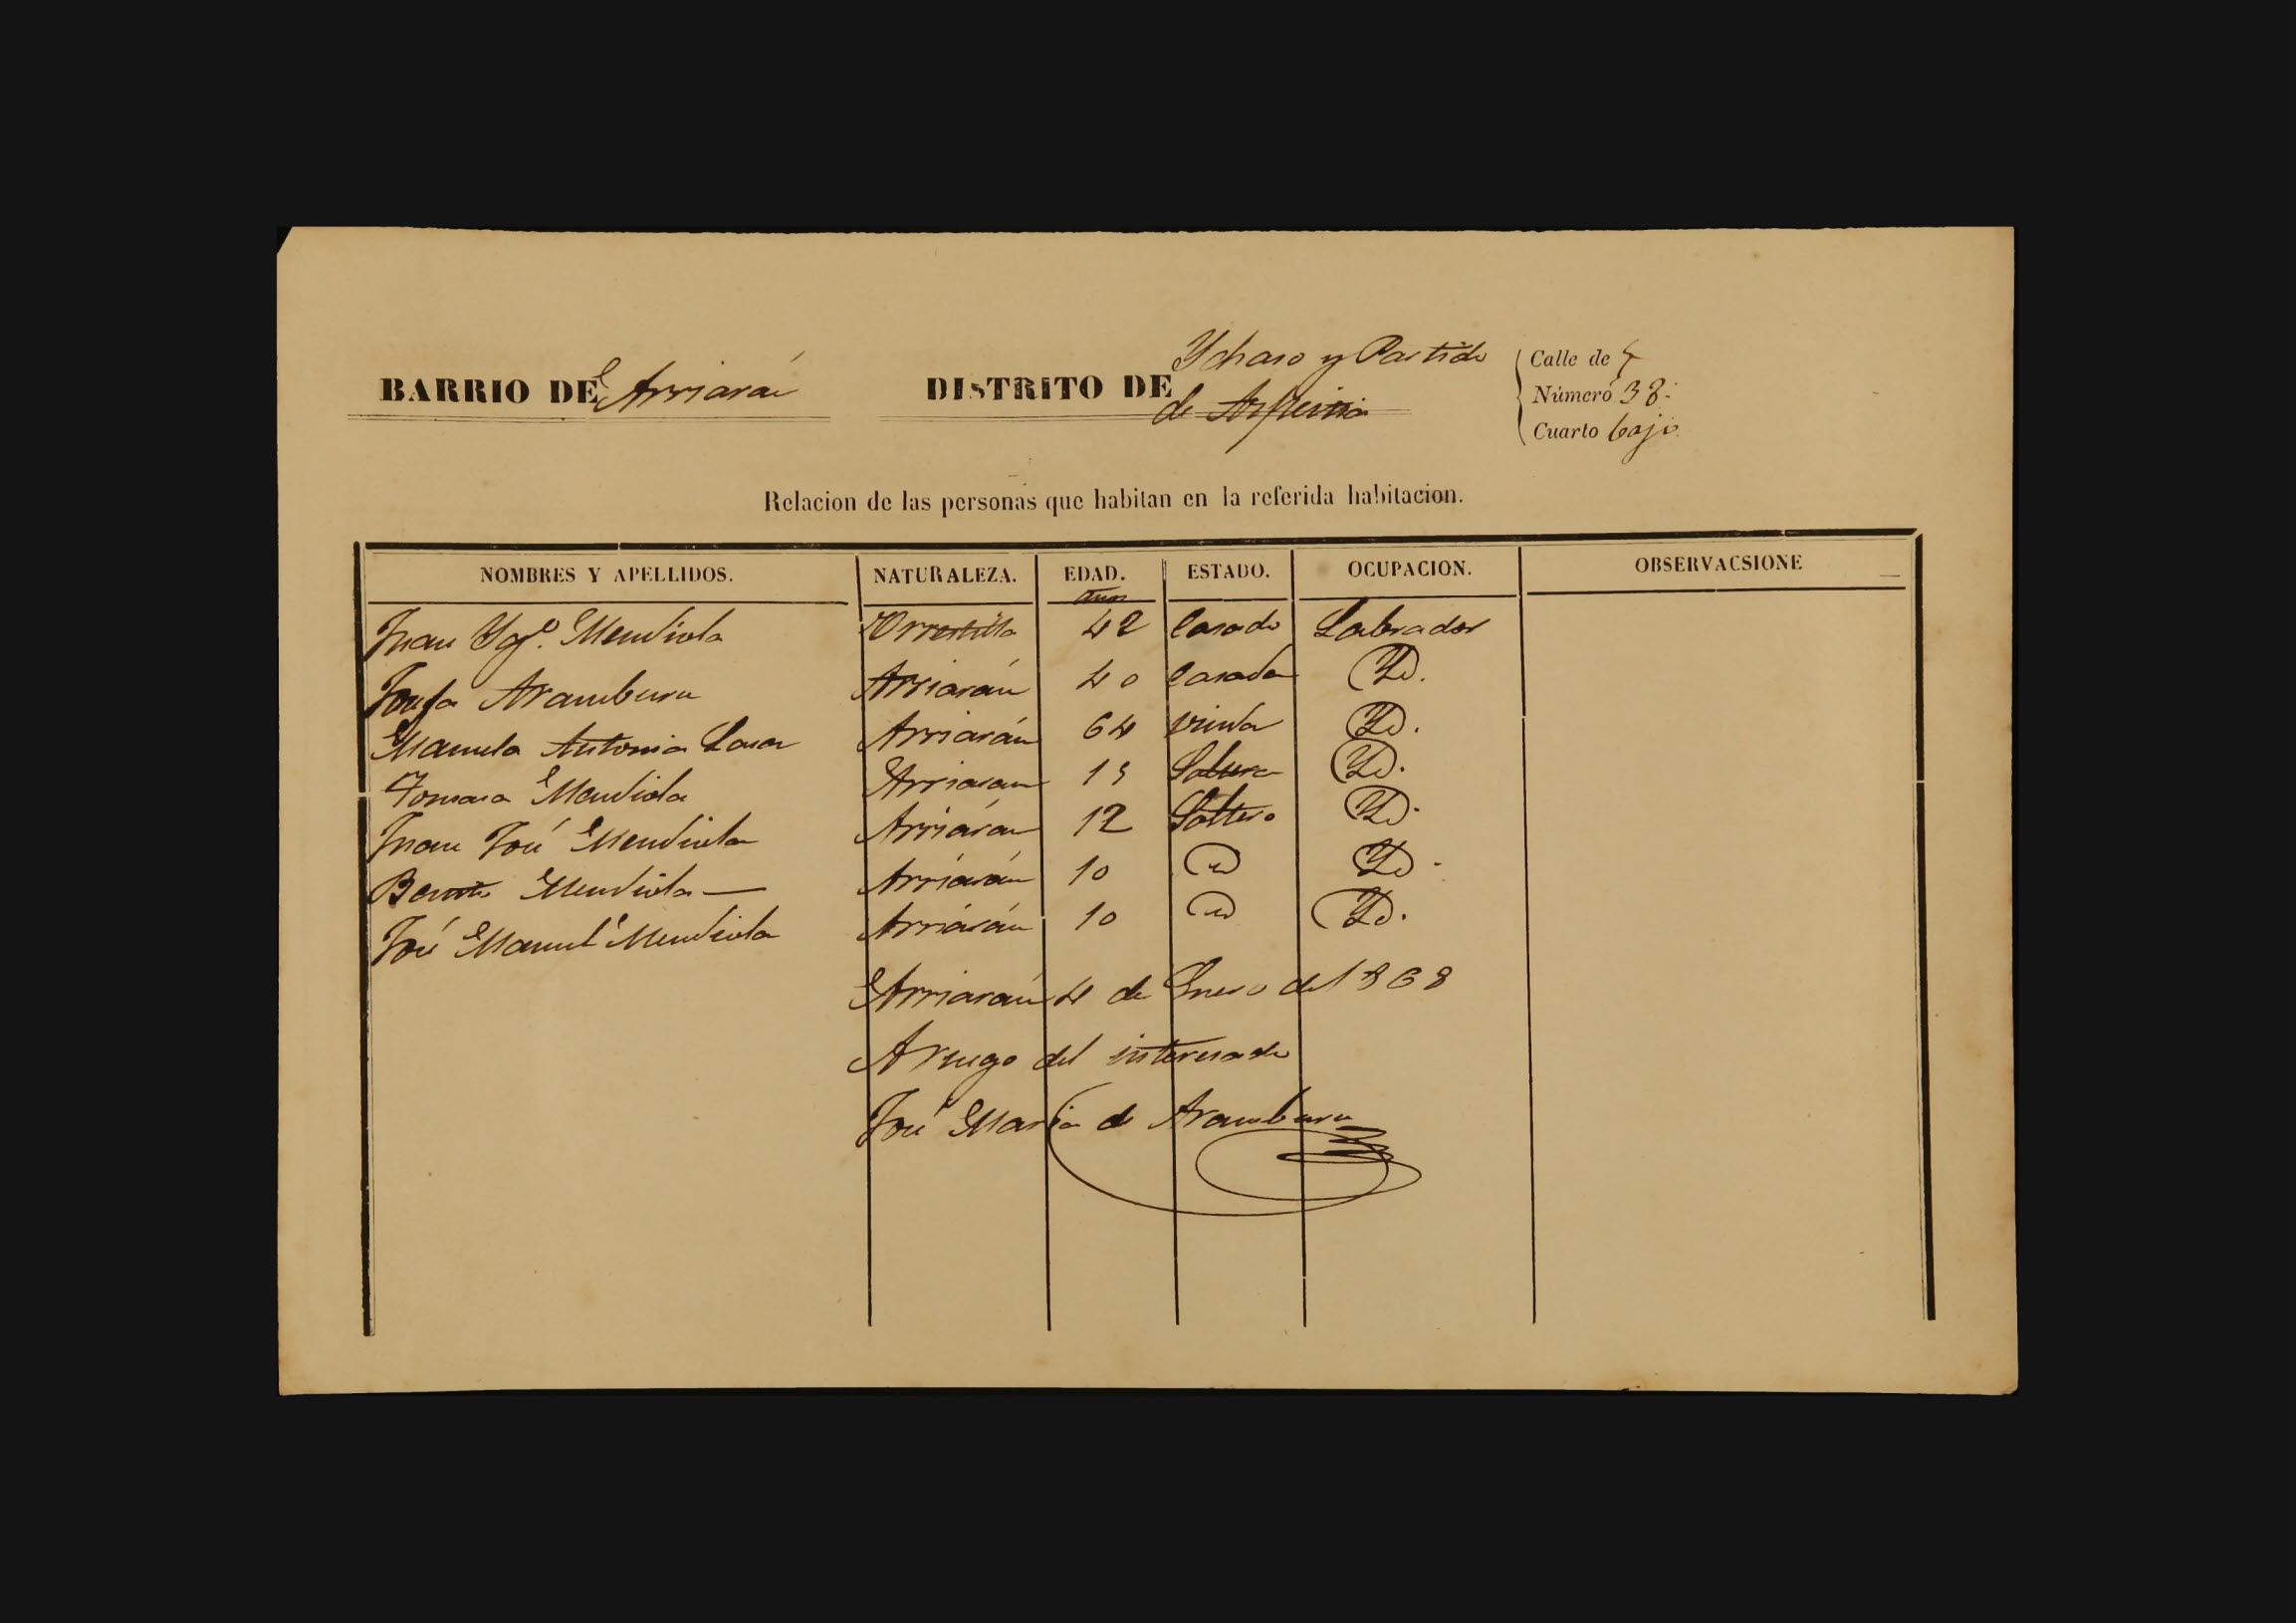 BARRIO DE Arriarán
DISTRITO DE Ychaso y Partido
de Azpeitia
Calle de
Número 38.
Cuarto bajo.
Relacion de las personas que habitan en la referida habitacion.
NOMBRES Y APELLIDOS. NATURALEZA. EDAD. ESTADO. OCUPACION. OBSERVACSIONE
años
Juan Ygº. Mendiola Urrestilla 42 Casado Labrador
Josefa Aramburu Arriarán 40 Casada Yd.
Manuela Antonia Lasa Arriarán 64 viuda Yd.
Tomasa Mendiola Arriaran 15 Soltera Yd.
Juan José Mendiola Arriarán 12 Soltero Yd.
Benito Mendiola Arriarán 10 id Yd.
José Manuel Mendiola Arriarán 10 id Yd.
Arriarán 4 de Enero de 1868
A ruego del interesado
José Maria de Aramburu